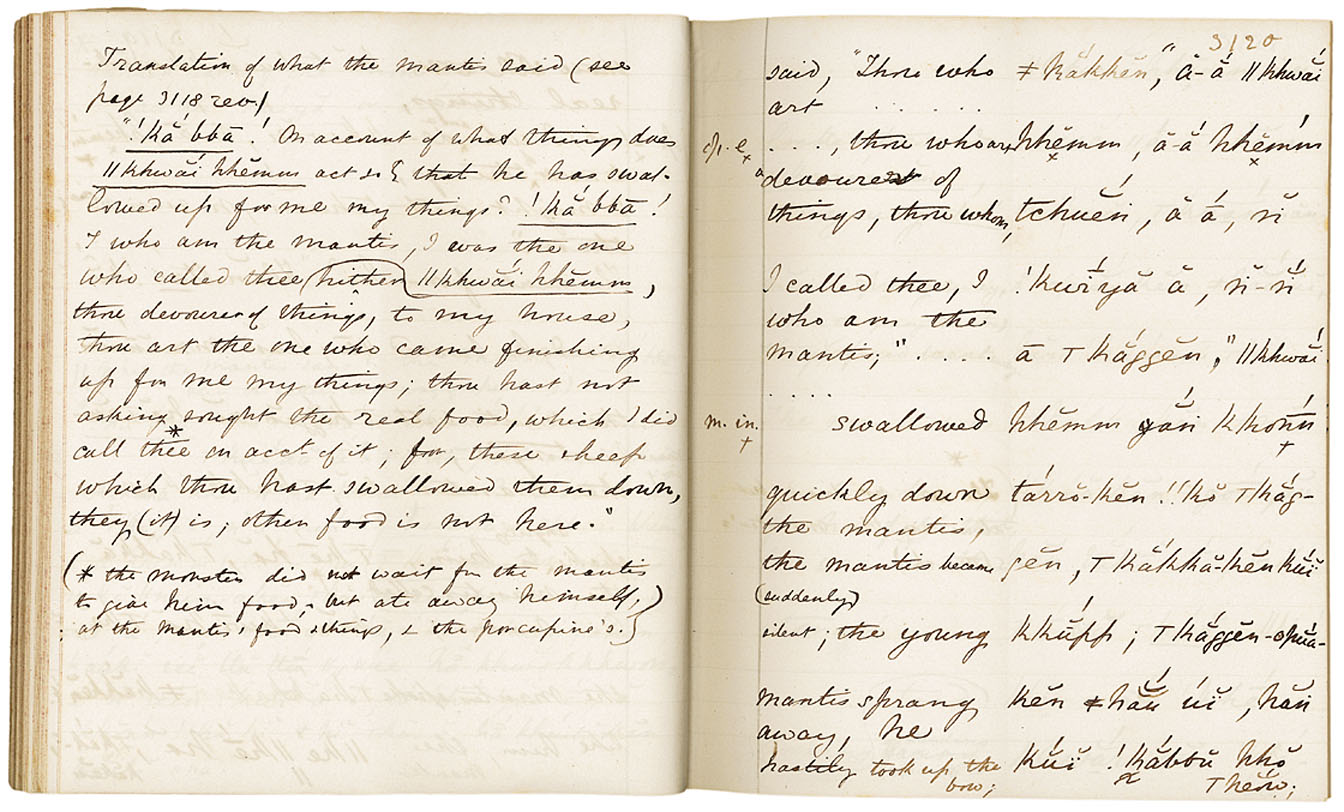 Translation of what the mantis said (see
page 3118 rev.)
"!Kắ bbā! On account of what things does
ǁkhwāí hhĕmm act so that he has swal-
lowed up for me my things? !Kắ bbā!
I who am the mantis, I was the one
who called thee hither ǁkhwāí hhĕmm,
thou devourer of things, to my house,
thou art the one who came finishing
up for me my things; thou hast not
asking sought the real food, which I did
call thee * on acct. of it; for, these sheep
which thou hast swallowed them down,
they (it) is; other food is not here."
(* the monster did not wait for the mantis
to give him food, but ate away himself,
at the mantis's food & things, & the porcupine's.)
3120
said, "Thou who ǂkăkkĕn, "ā-ā́ ǁkhwāí
art . . . . . .
o/p. e. + . . . ., thou who art, hhĕmm, ā-ā́ hhĕmm
devourer of
things, thou whom, tchuĕń, ā ā́, ň
I called thee, I !kwī́yā ā, ň-ň́
who am the
mantis;" . . . . ā Tkăǵgĕn," ǁkhwāí
. . . .
m. in. + swallowed hhĕmm yăń kkoń̄
quickly down tárrŏ-kĕn !!kŏ Tkăǵ-
the mantis,
the mantis became gĕn, Tkăkkă-kĕn kŭĭ
(suddenly)
silent; the young kkŭpp; Tkăǵgĕn-opúa-
mantis sprang kĕn ǂhăŭ úĭ, hăn
away, he
hastily took up the kŭĭ !kăbbŭ hhŏ
bow; Thĕŏw;